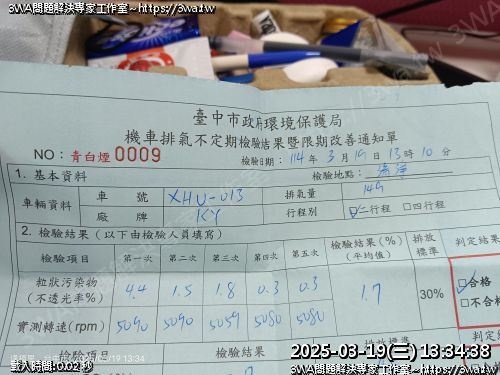 3WA問題解決專家工作室~https://3wa.tw
3WA問題解決專家工作室~https://3wa.tw
臺中市政府環境保護局
機車排氣不定期檢驗結果暨限期改善通知單
NO：青白煙0009
檢驗日期：114年3月19日13時10分
1. 基本資料
檢驗地點：
車輛資料
車號
XHU-013
排氣量
149
廠牌
KY
行程別
☑二行程 □四行程
2. 檢驗結果（以下由檢驗人員填寫）
檢驗項目 第一次 第二次 第三次 第四次 第五次 檢驗結果(%)(平均值) 排放標準 判定結果
粒狀污染物(不透光率%) 4.4 1.5 1.8 0.3 0.3 1.7 30% ☑合格
□不合格
實測轉速(rpm) 5090 5090 5059 5080 5080
檢驗項目 檢驗結果 排放標準 判定結
載入時間:0.02 秒
2025-03-19(三) 13:34:38